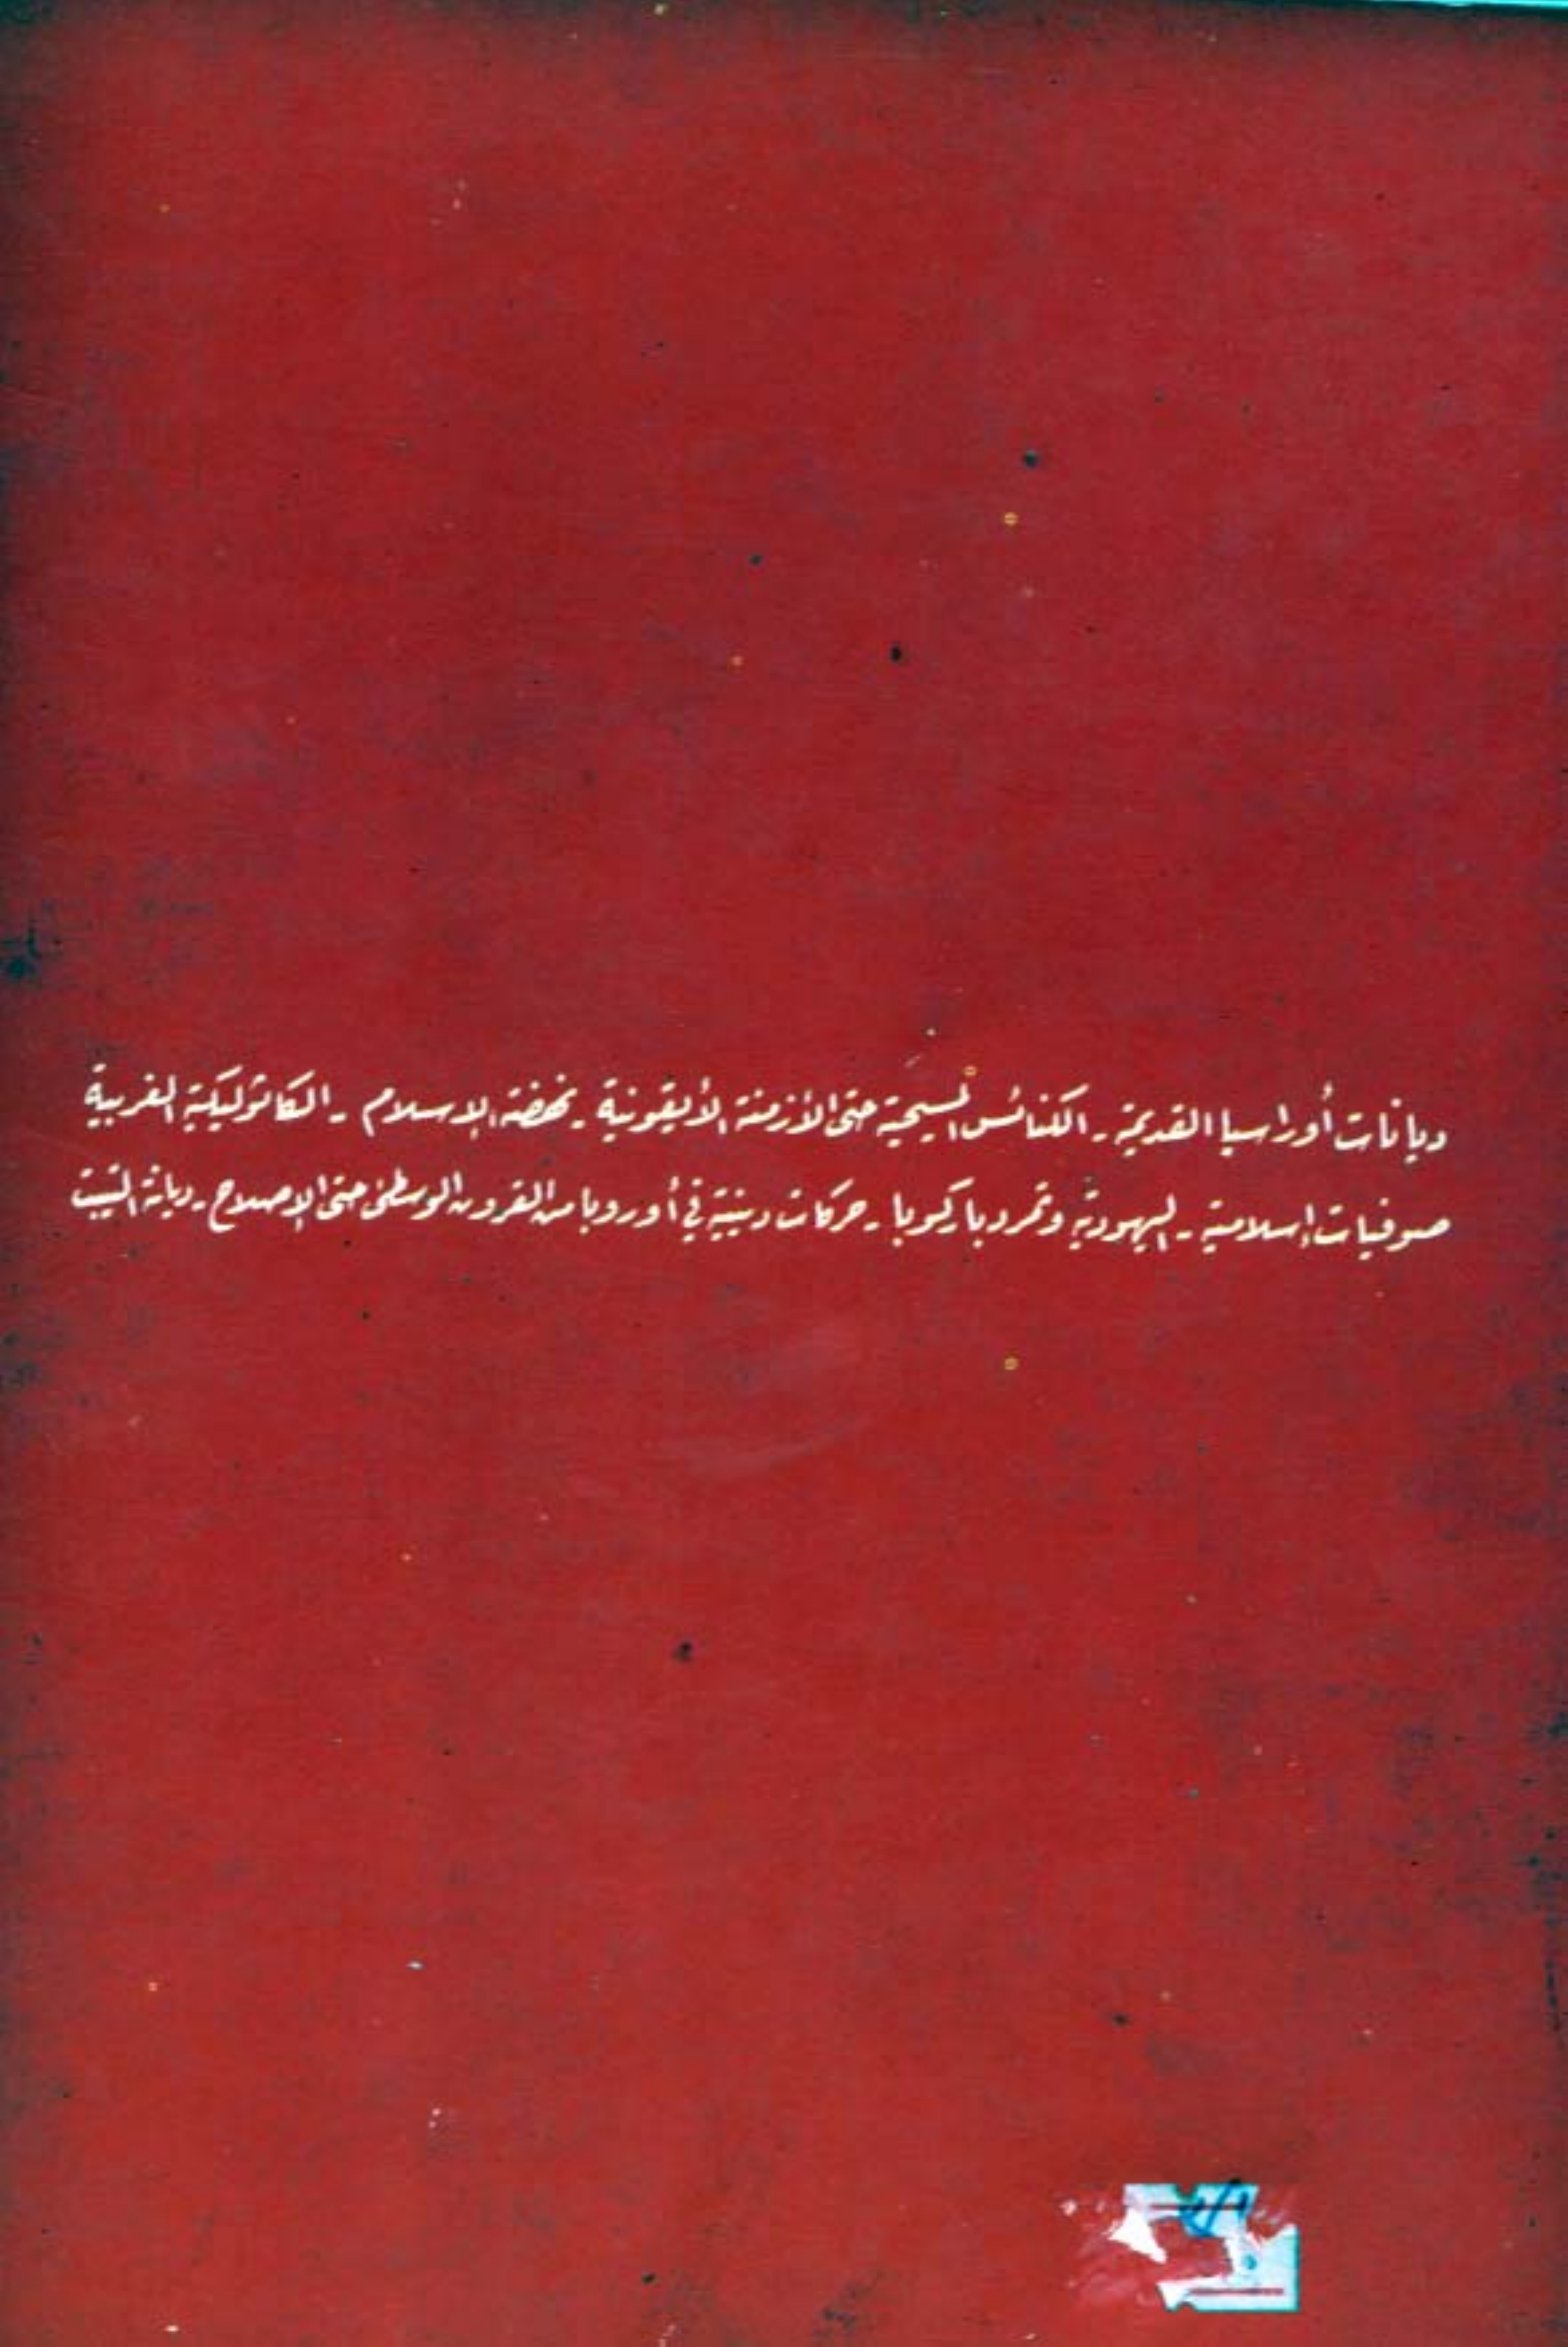 ديانات أوراسيا القديمة ـ الكنائس المسيحية حتى الأزمنة الأيقونية ـ نهضة الإسلام ـ الكاثوليكية الغربية
صوفيات إسلامية ـ اليهودية وتمرد باركوبا ـ حركات دينية في أوروبا من القرون الوسطى حتى الإصلاح ـ ديانة التيبت